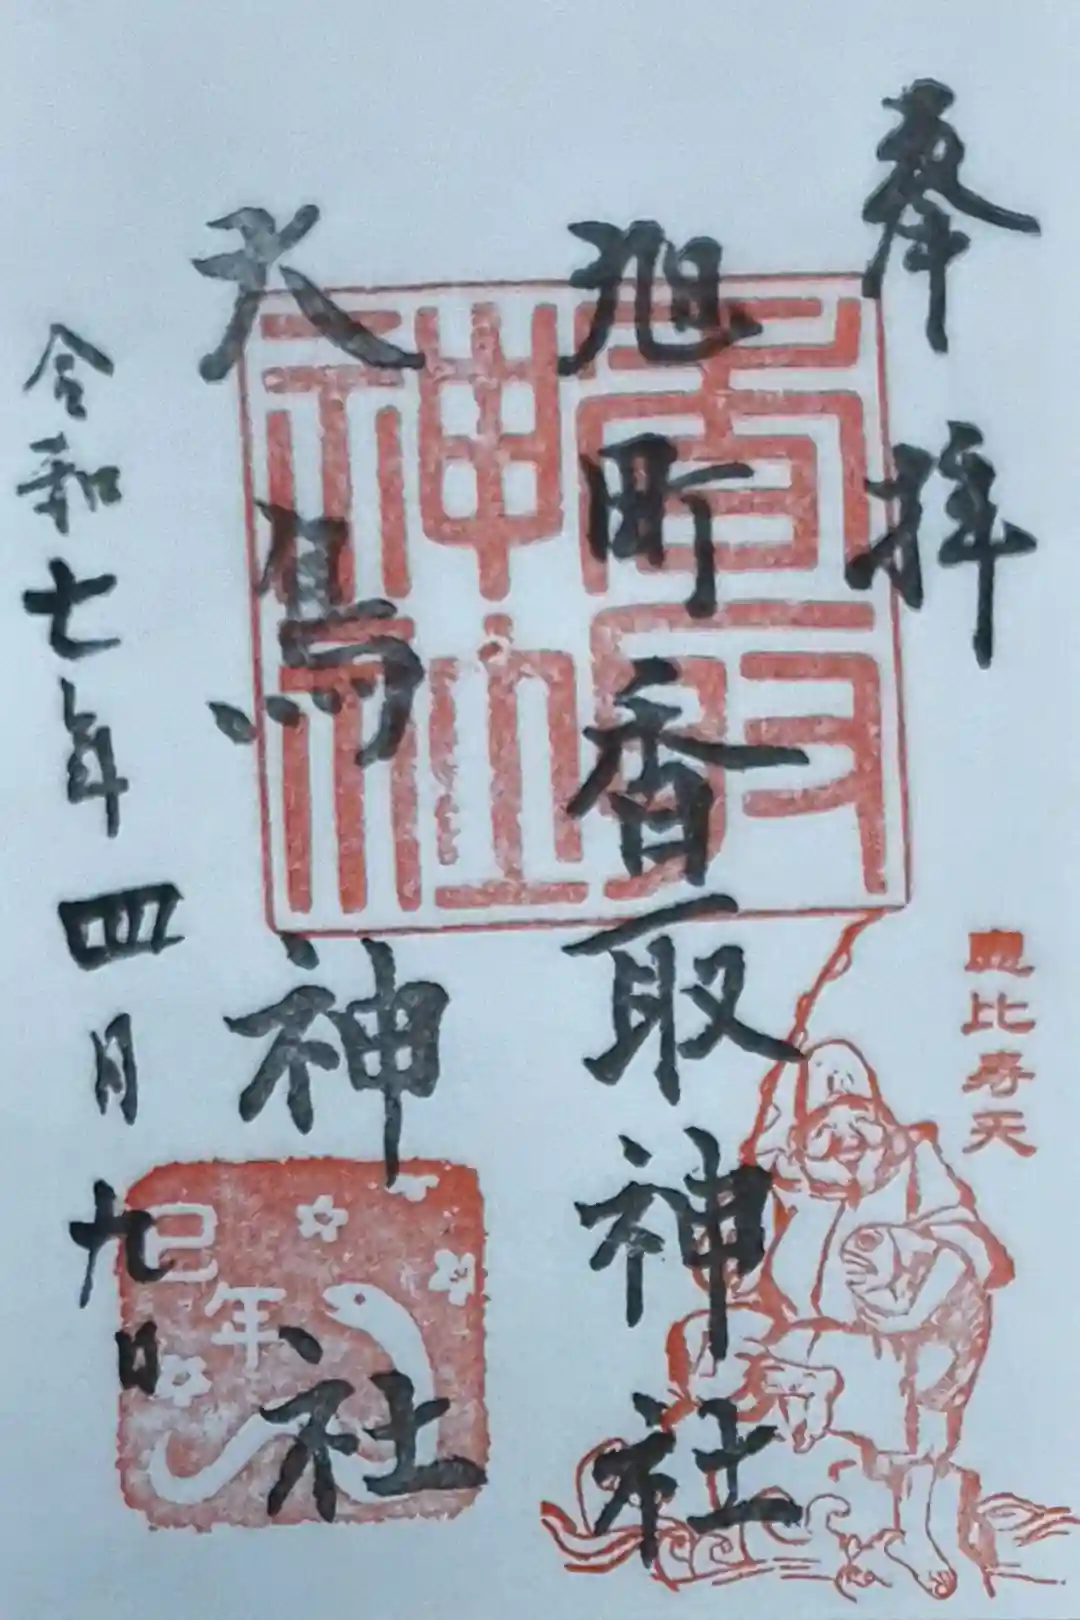 奉拝
旭町香取神社
大鳥神社
令和七年四月九日
香取神社
恵比寿天
巳年